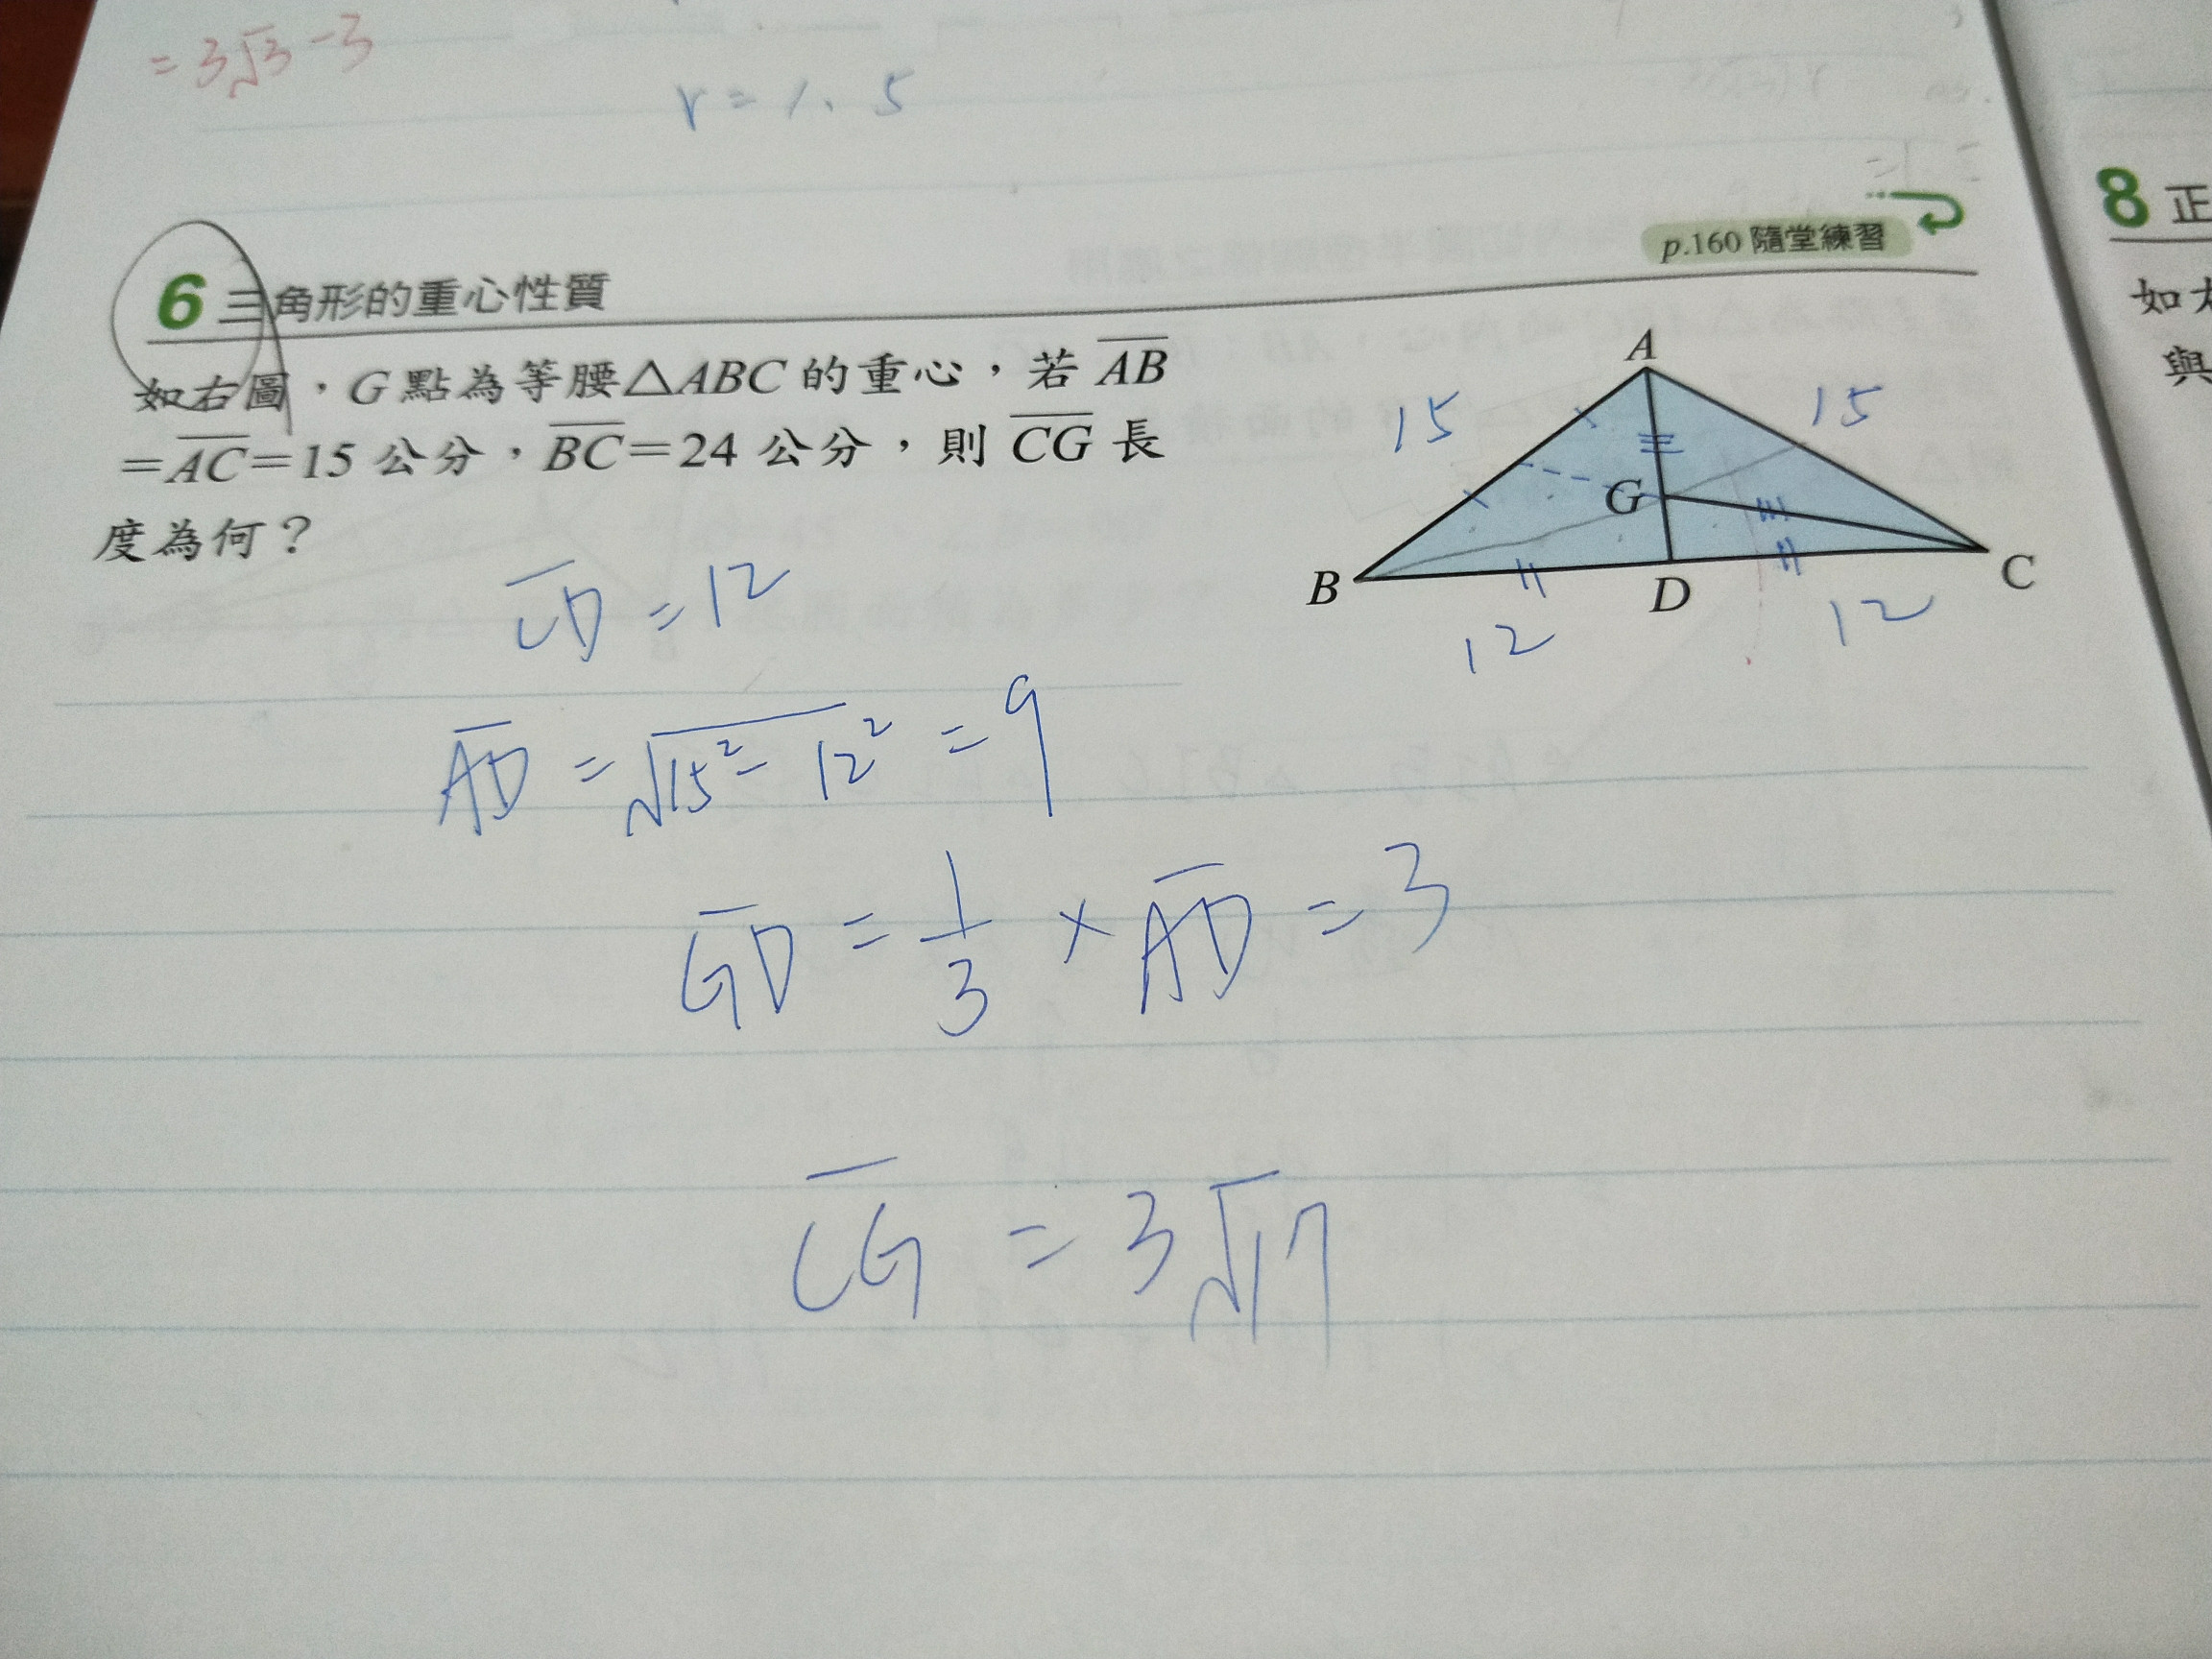 = 3√3 - 3
r = 1.5
p.160 隨堂練習
6 三角形的重心性質
如右圖，G 點為等腰△ABC 的重心，若 AB
=AC=15 公分，BC=24 公分，則 CG 長
度為何？
A
15
15
G
B
D
C
12
12
CD = 12
AD = √15² - 12² = 9
GD = 1/3 × AD = 3
CG = 3√17
8 正
如
與